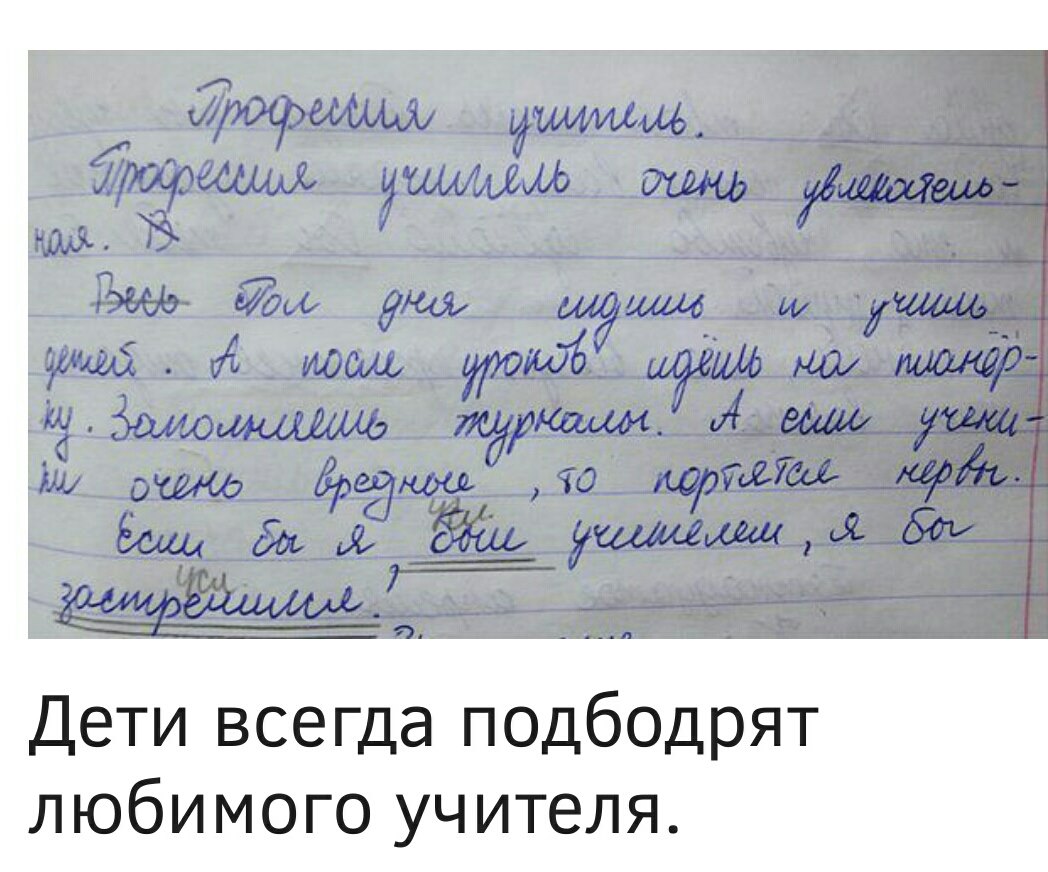 Профессия учитель.
Профессия учитель очень увлекатель-
ная. В
Весь Пол дня сидишь и учишь
детей. А после уроков идёшь на планёр-
ку. Заполняешь журналы. А если учени-
ки очень вредные, то портятся нервы.
усл.
Если бы я был учителем, я бы
усл.
застрелился.
Дети всегда подбодрят
любимого учителя.